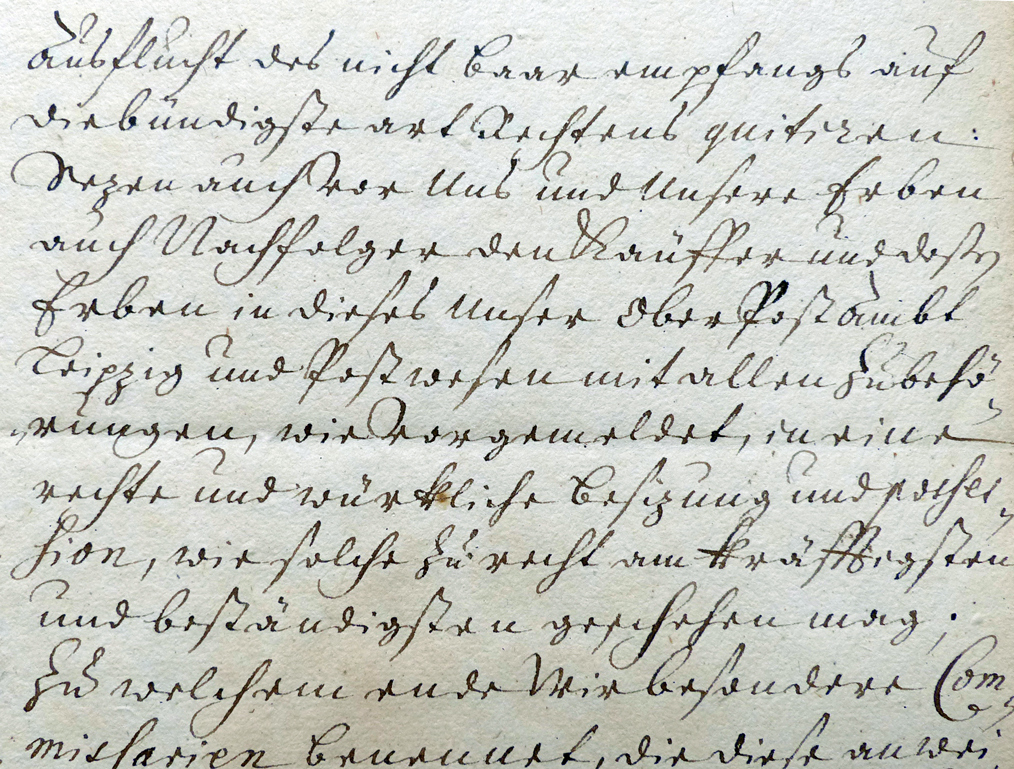 Ausflucht des nicht baar empfangs auf
die bündigste art Rechtens quitiren:
Sezen auch vor Uns und Unsere Erben
auch Nachfolger den Käuffer und deßen
Erben in dieses Unser Ober Post ambt
Leipzig und Postwesen mit allen Zubehö-
rungen, wie vorgemeldet, in eine
rechte und würkliche besizung und posses-
sion, wie solche zu recht am kräfftigsten
und beständigsten geschehen mag;
Zu welchem ende Wir besondere Com-
missarien benennet, die diese anwei-